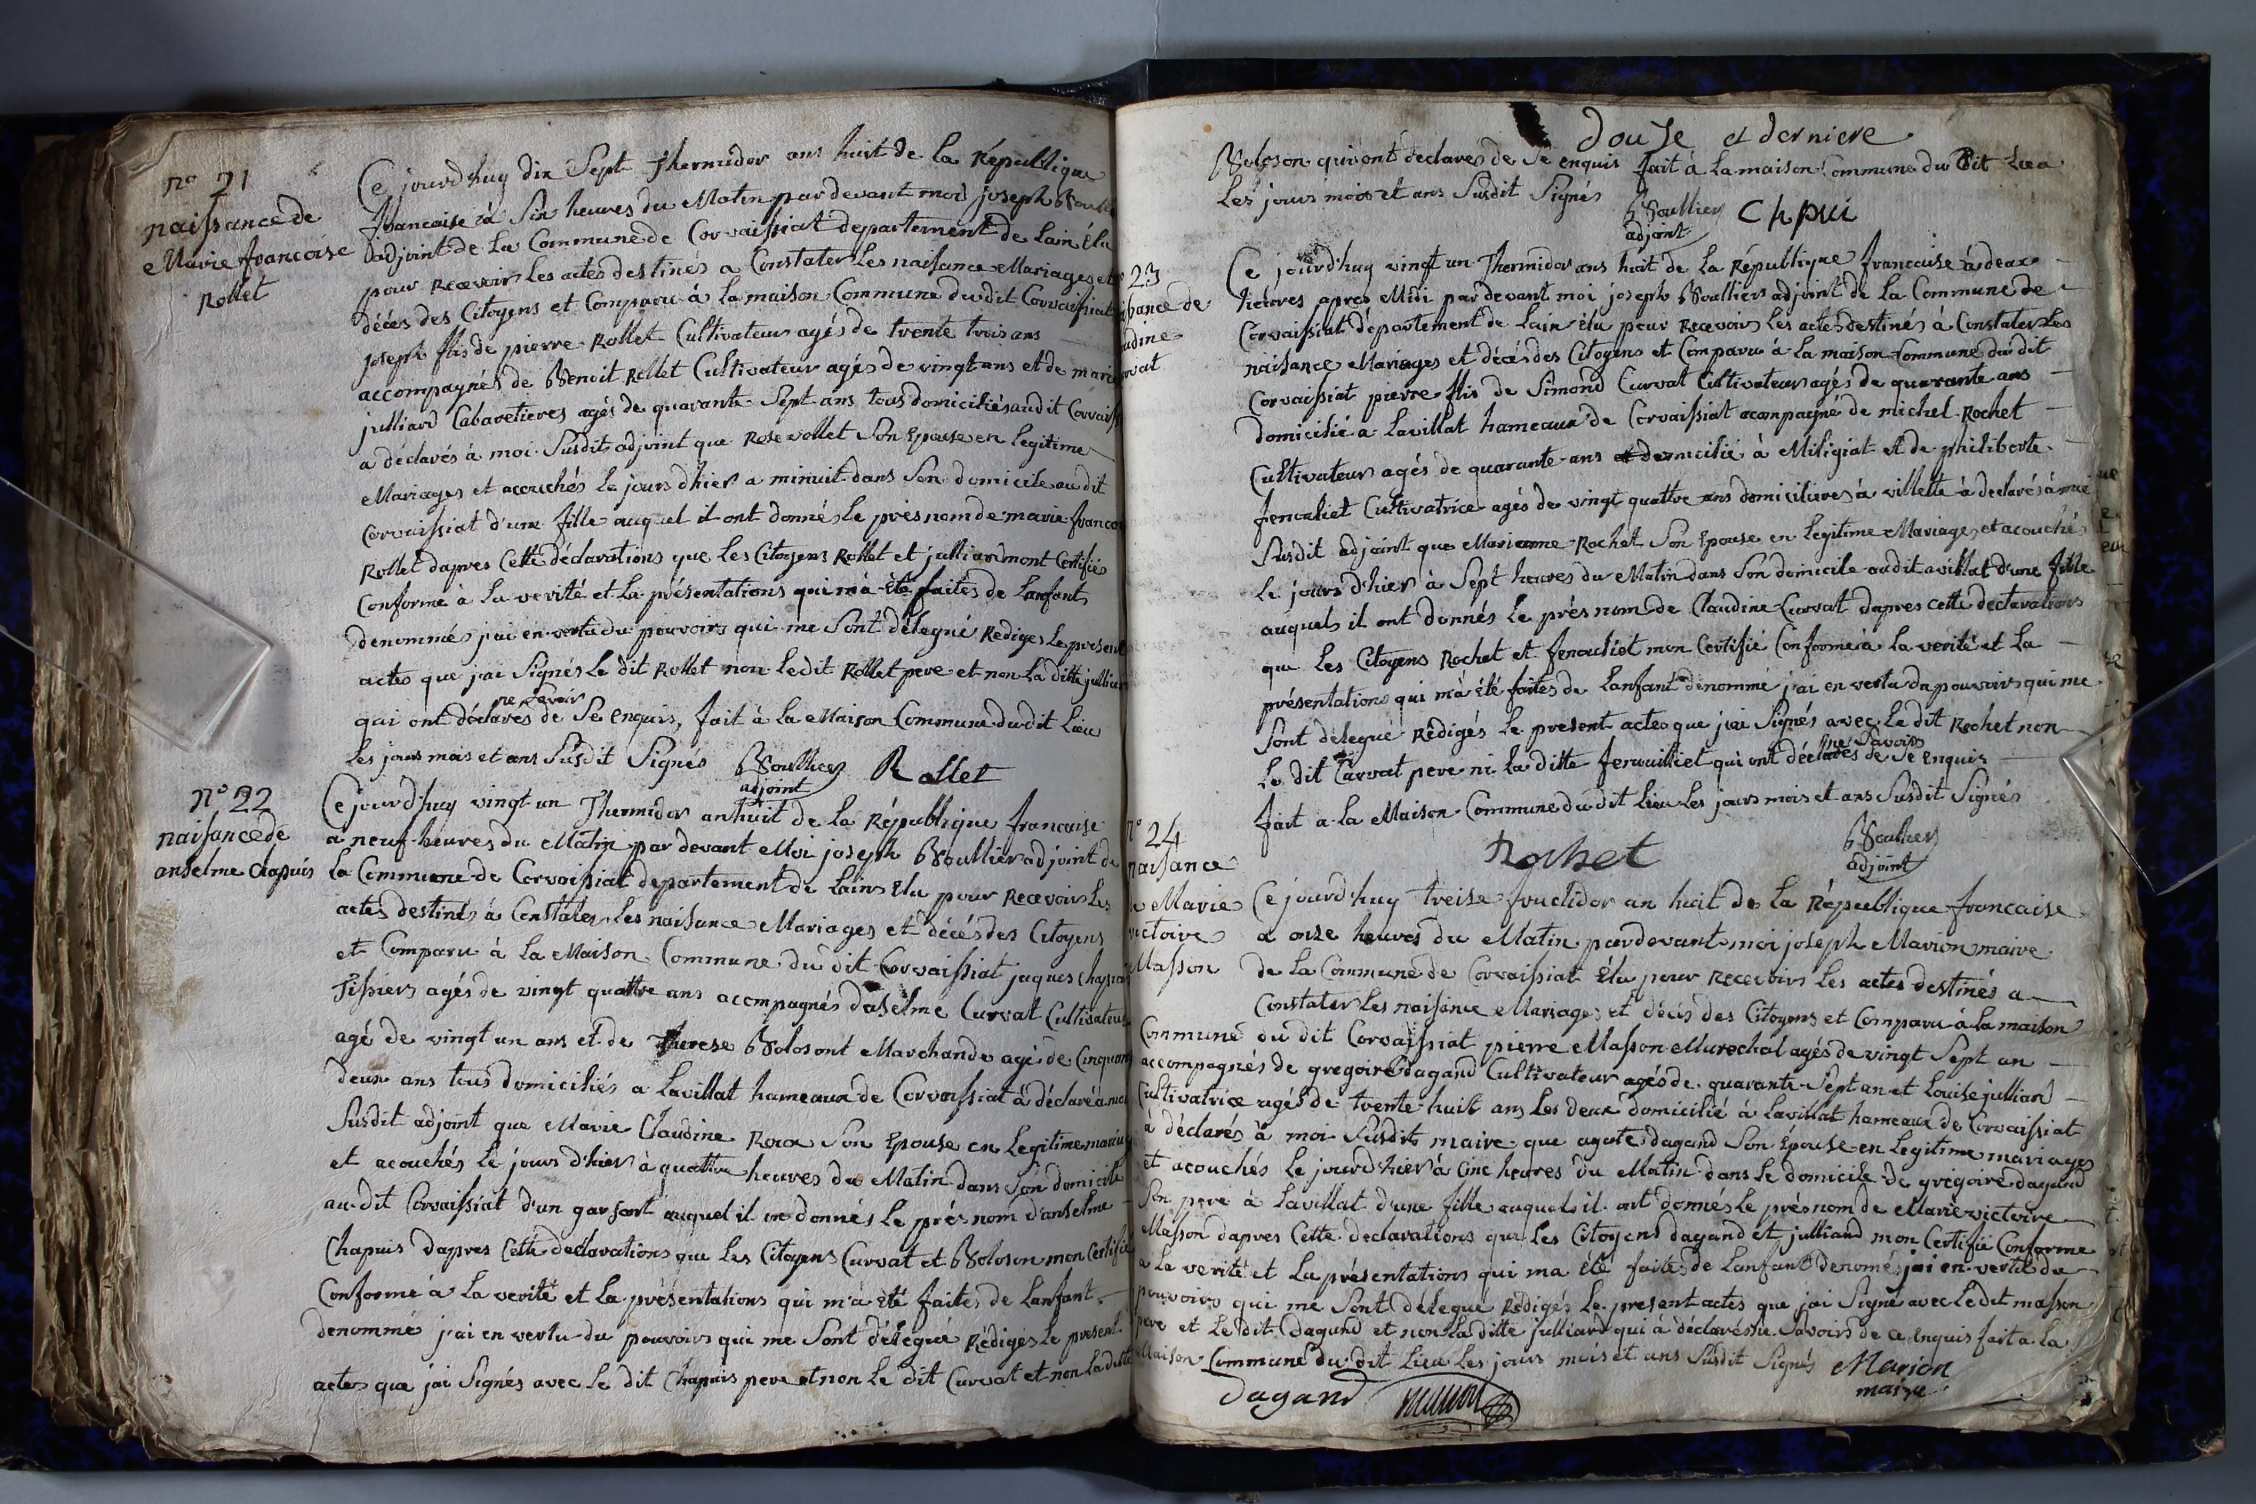 n° 21
naissance de
Marie francoise
Rollet
Ce jourd'huy dix Sept Thermidor ans huit de la République
francaise à Six heures du Matin par devant moi joseph
adjoint de La Commune de Corvaissiat departement de Lain Élu
pour Recevoir Les actes destinés a Constater Les naissance Mariages et
décés des Citoyens et Comparu à la maison Commune du dit Corvaissiat
joseph flis de pierre Rollet Cultivateur agés de trente trois ans
accompagnés de Benoit Rollet Cultivateur agés de vingt ans et de marie
julliard Cabaretieres agés de quarante Sept ans tous domiciliés audit
a déclarés à moi Susdit adjoint que Rose rollet Son Epouse en Legitime
Mariages et accouchés Le jours d'hier a minuit dans Son domicile au dit
Corvaissiat d'une fille auquel il ont donnés Le prés nom de marie
Rollet dapres Cette déclarations que Les Citoyens Rollet et julliard mont Certifiés
Conforme à La verité et La présentations qui m'à été faites de Lanfant
denommés j'ai en vertu du pouvoirs qui me Sont délegué Rediges Le present
actes que j'ai Signés Le dit Rollet non Ledit Rollet pere et non La ditte
ne Savoir
qui ont déclares de Se enquis, fait à La Maison Commune du dit Lieu
Les jours mois et ans Susdit Signés Boullier Rollet
adjoint
n° 22
naisance de
anselme Chapuis
Ce jourd'huy vingt un Thermidor an huit de La République francaise
a neuf heures du Matin par devant Moi joseph Boullier adjoint de
La Commune de Corvaissiat departement de Lains Elu pour Recevoir Les
actes destinés à Constater Les naisance Mariages et décés des Citoyens
et Comparu à La Maison Commune du dit Corvaissiat jaques
Tissiers agés de vingt quattre ans accmpagnés daselme Curvat Cultivateur
agé de vingt un ans et de Therese Bolosont Marchande agé de
deux ans tous domiciliés a Lavillat hameaux de Corvaissiat à déclaré à moi
Susdit adjoint que Marie Claudine Roux Son Epouse en Legitime
et acouchés Le jours d'hier à quattre heures du Matin dans Son domicile
au dit Corvaissiat d'un garsont auquel il on donnés Le prés nom d'anselme
Chapuis dapres Cette déclarations que Les Citoyens Curvat et Boloson mon Certifié
Conforme à La verité et La présentations qui m'à été faites de Lanfant
denommé j'ai en vertu du pouvoirs qui me Sont délegué Rédiges Le present
actes que j'ai Signés avec Le dit Chapuis pere et non Le dit Curvat et non La ditte
douze et derniere
Boloson qui ont déclares de Se enquis fait à La maison Commune du Dit Lieu
Les jours mois et ans Susdit Signés Boullier Chpui
adjoint
23
Ce jourd'huy vingt un Thermidor ans huit de La République francaise à deux
heures apres Midi par devant moi joseph Boulliers adjoint de La Commune de
Corvaissiat département de Lain Élu pour Recevoirs Les actes destinés à Constater Les
naisance Mariages et décés des Citoyens et Comparu à La maison Commune du dit
Corvaissiat pierre flis de Simond Curvat Cultivateurs agés de quarante ans
domicilié a Lavillat hameaux de Corvaissiat acompagné de michel Rochet
Cultivateurs agés de quarante ans et domicilié à Miligiat et de philiberte
Cultivatrice agés de vingt quattre ans domicilieres à villette à déclarés à moi
Susdit adjoint que Marianne Rochet Son Epouse en Legitime Mariages et acouchés
Le jours d'hier à Sept heures du Matin dans Son domicile audit avillat d'une fille
auquels il ont donnés Le prés nom de Claudine Curvat dapres cette déclarations
que Les Citoyens Rochet et fenouliet mon Certifié Conforme à La verité et La
présentations qui m'à été faites de Lanfant dénommé j'ai en vertu du pouvoirs qui me
Sont delegué Rédigés Le present actes que j'ai Signés avec Le dit Rochet non
ne Savoirs
Le dit Curvat pere ni La ditte qui ont déclares de Se enquis
fait a La Maison Commune du dit Lieu Les jours mois et ans Susdit Signés
Rochet Boullier
adjoint
n° 24
naisance
de Marie
victoire
Masson
Ce jourd'huy treise fructidor an huit de La République francaise
a onze heures du Matin pardevant moi joseph Marion maire
de La Commune de Corvaissiat Élu pour Recevoirs Les actes destinés a
Constater Les naisance Mariages et décés des Citoyens et Comparu à La maison
Commune du dit Corvaissiat pierre Masson Marechal agés de vingt Sept an
accompagnés de gregoire dagand Cultivateur agés de quarante Sept an et Louise jullian
Cultivatrice agés de trente huit ans Les deux domicilié à Lavillat hameaux de Corvaissiat
à déclarés à moi Susdit maire que agate dagand Son Epouse en Legitime mariages
et acouchés Le jourd'hier à Cinc heures du Matin dans Le domicile de gregoire dagand
Son pere à Lavillat d'une fille auquels il ont donnés Le prés nom de Marie victoire
Masson dapres Cette declarations que Les Citoyens dagand et julliand mon Certifié Conforme
a La verité et La présentations qui ma été faites de Lanfant denomés j'ai en vertu du
pouvoirs qui me Sont délegué Rédigés Le present actes que j'ai Signé avec Le dit masson
pere et Le dit dagand et non La ditte julliard qui à déclarés ne Savoirs de ce enquis fait a La
Maison Commune du dit Lieu Les jours mois et ans Susdit Signés Marion
maire
dagand